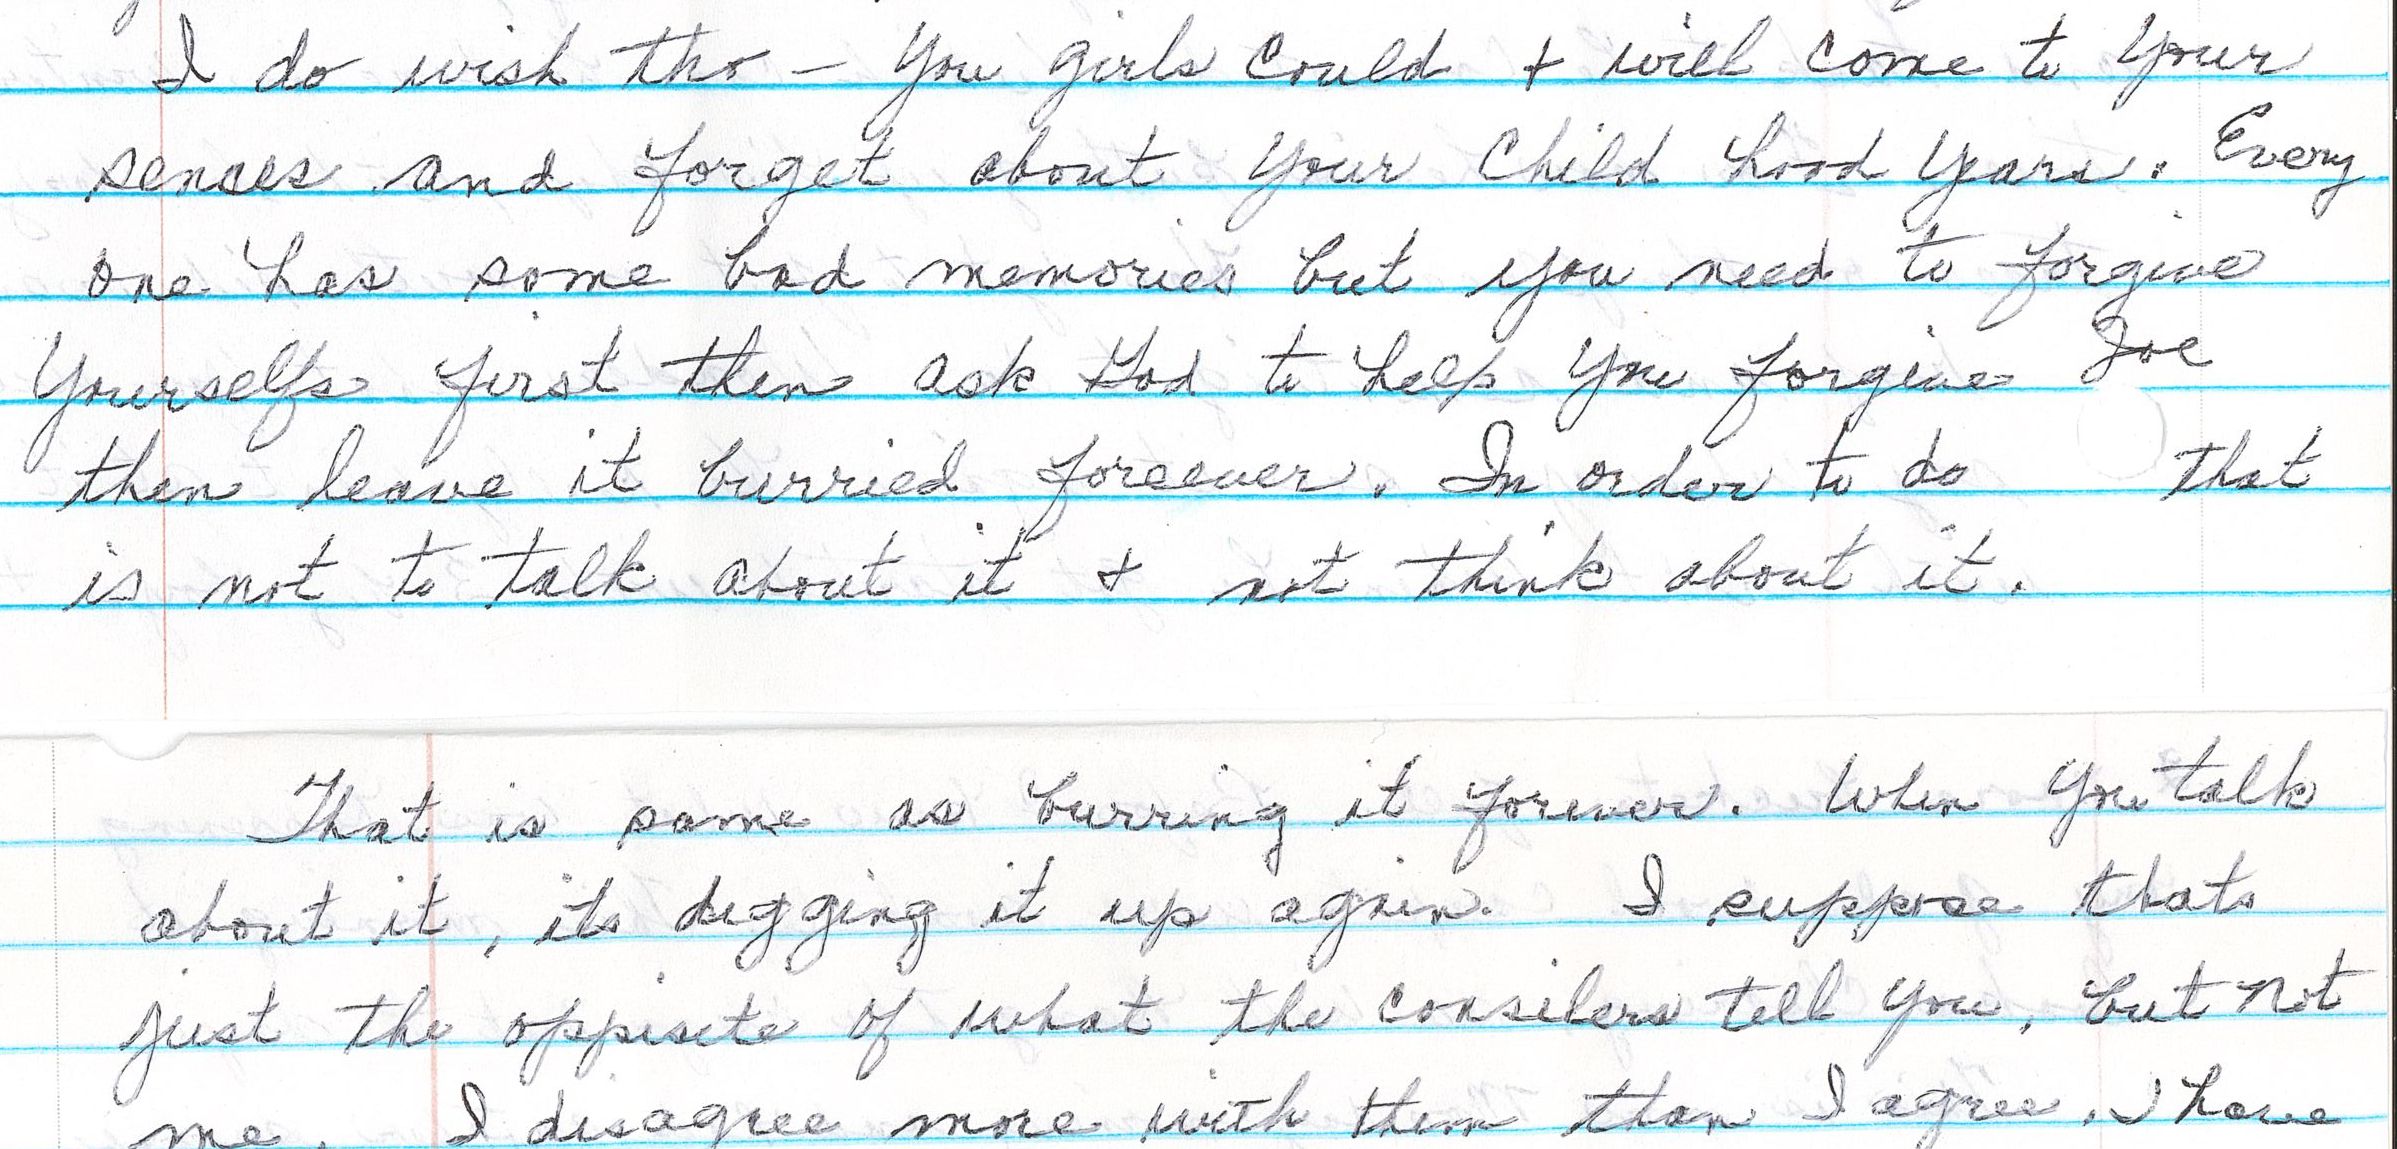 I do wish tho - You girls could + will come to your
senses and forget about your Child hood years. Every
one has some bad memories but you need to forgive
Yourselfs first then ask God to help you forgive Joe
then leave it burried foreever. In order to do that
is not to talk about it + not think about it.
That is same as burring it forever. When you talk
about it, its digging it up again. I suppose thats
just the oppisite of what the consilers tell you, but not
me. I disagree more with them than I agree. I have